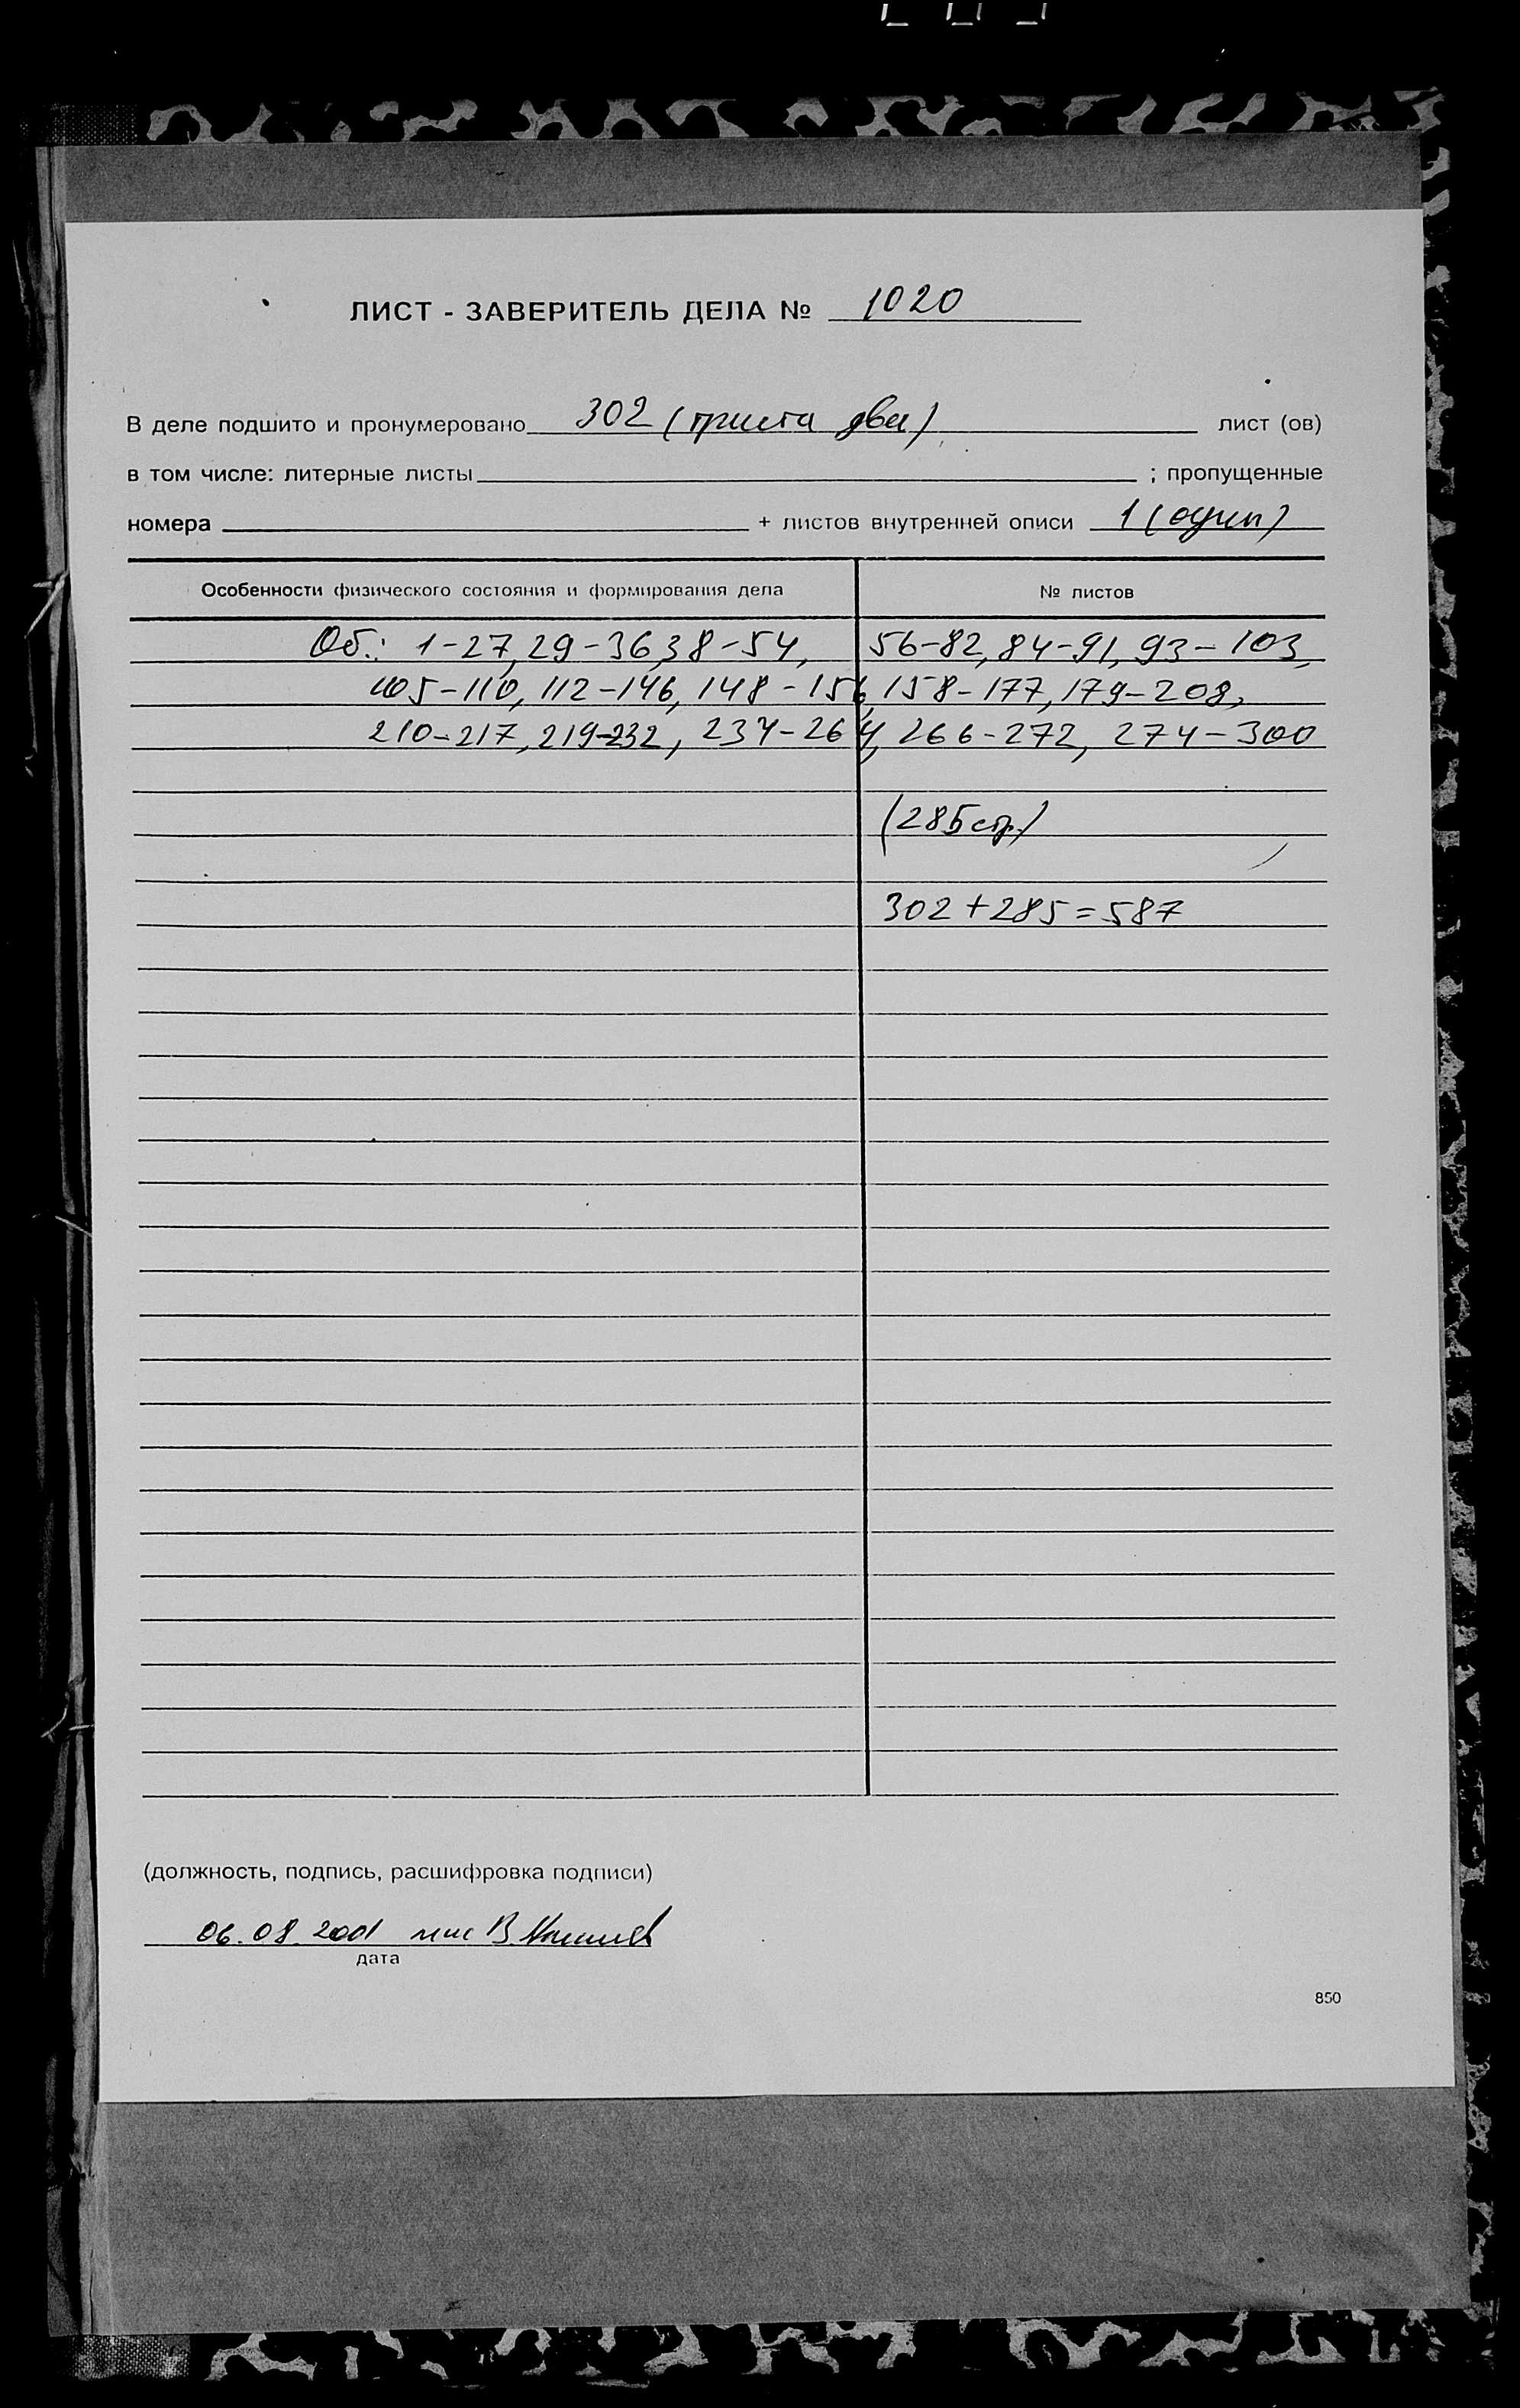 ЛИСТ - ЗАВЕРИТЕЛЬ ДЕЛА № 1020
В деле подшито и пронумеровано 302 (триста два) лист (ов)
в том числе: литерные листы ; пропущенные
номера + листов внутренней описи 1 (один)
Особенности физического состояния и формирования дела № листов
Об.: 1-27, 29-36, 38-54, 56-82, 84-91, 93-103,
105-110, 112-146, 148-156, 158-177, 179-208,
210-217, 219-232, 234-264, 266-272, 274-300
(285 стр.)
302+285=587
(должность, подпись, расшифровка подписи)
06.08.2001 В.
дата
850